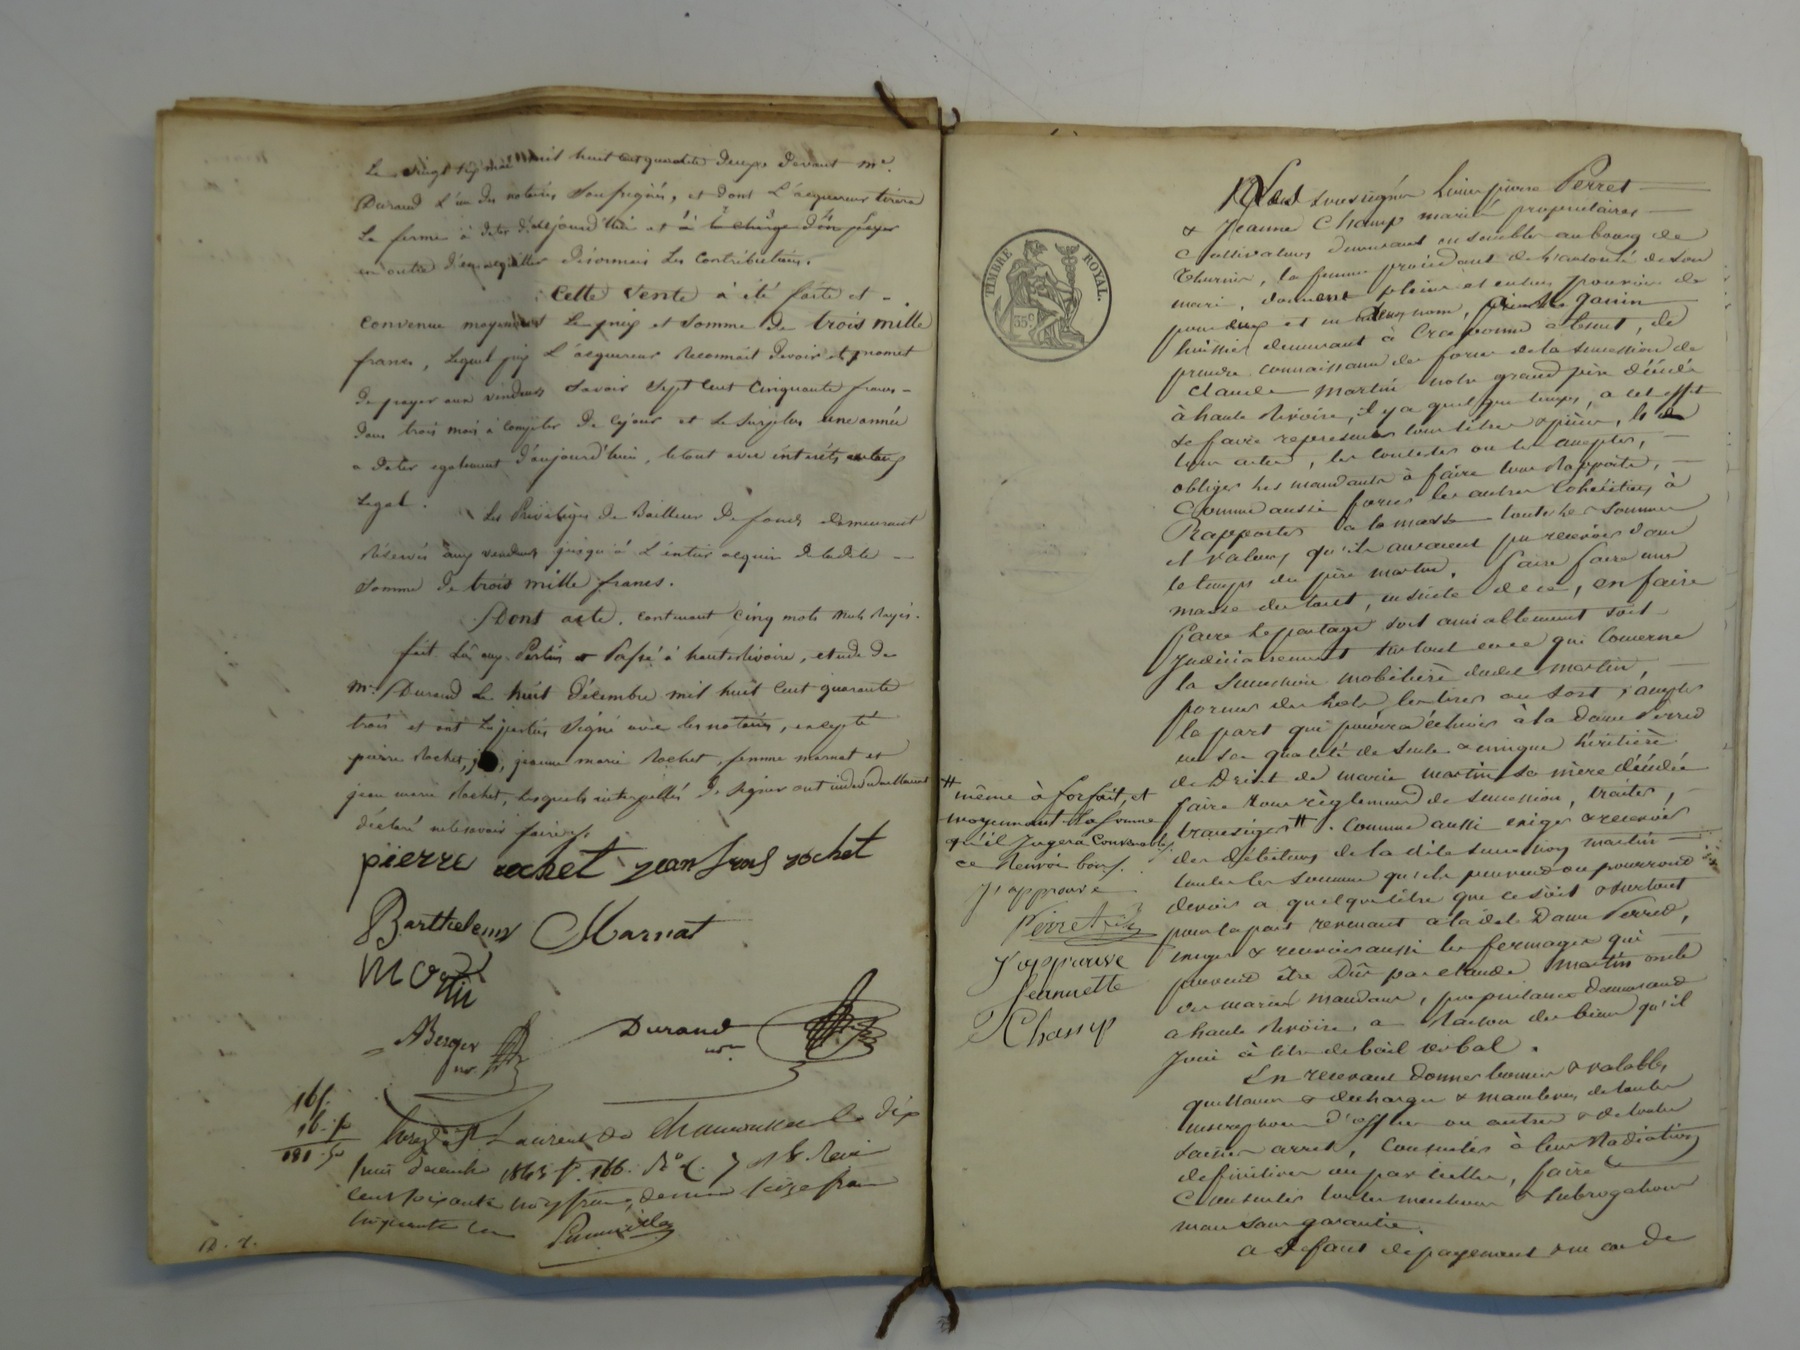 Le vingt sept mai mil huit cent quarante deux devant Me
Durand l'un des notaires soussignés, et dont l'acquereur tirera
la ferme à dater d'aujourd'hui et à la charge d'en payer
en outre d'en acquitter désormais les contributions.
Cette vente a été faite et
convenue moyennant le prix et somme de trois mille
francs, lequel prix l'acquereur reconnait devoir et promet
de payer aux vendeurs savoir sept cent cinquante francs
dans trois mois à compter de ce jour et le surplus une année
a dater egalement d'aujourd'hui, le tout avec intérêts au taux
legal.
Les Privilèges de Bailleur de fonds demeurant
réservés aux vendeurs jusqu'à l'entier acquit de ladite
somme de trois mille francs.
Dont acte, contenant cinq mots nuls rayés.
fait lu aux Parties et Passé à hauterivoire, etude de
Me Durand le huit décembre mil huit cent quarante
trois et ont les parties signé avec les notaires, excepté
pierre Rochet, jeanne marie Rochet, femme marnat et
jean marie Rochet, lesquels interpellés de signer ont individuellement
déclaré ne le savoir faire
pierre rochet jean frois rochet
Barthelemy Marnat
ABerger
nre
Durand
nre
161
16. p
181 50
Enregé à St Laurent de Chamousset le dix
huit decembre 1843 fo. 166. Ro. C. 7 et 8. Recu
cent soixante francs, decime seize francs
cinquante cen
TIMBRE ROYAL.
35c
Nous soussignés Pierre Perret
& Jeanne Champ mariés propriétaires
Cultivateurs demeurant ensemble au bourg de
la femme procédant de l'autorité de son
mari, donnent pleins et entiers pouvoirs de
pour eux et en leurs nom,
huissier demeurant à Craponne à l'effet, de
prendre connaissance des forces de la succession de
Claude Martin notre grand père décédé
à haute Rivoire, il y a quelque temps, a cet effet
se faire representer tous titres & pièces,
tous actes, les contester ou les accepter,
obliger les mandants à faire tous Rapports,
Comme aussi forcer les autres Cohéritiers à
Rapporter à la masse toutes les sommes
et valeurs qu'ils auraient pu recevoir dans
le temps du père martin. faire faire une
masse du tout, ensuite de ce, en faire
faire le partage soit amiablement soit
Judiciairement surtout en ce qui concerne
la succession mobilière dudit martin,
former des lots les tirer au sort, accepter
la part qui pourra échoir à la dame Perret
en sa qualité de seule & unique héritière
de Droit de marie martin sa mère décédée
faire tous règlement de succession, traiter,
transiger #. Comme aussi exiger & recevoir
des débiteurs de la dite succession martin
toutes les sommes qu'ils peuvent ou pourront
devoir a quelque titre que ce soit & surtout
pour la part revenant a la dite Dame Perret,
exiger & recevoir aussi les fermages qui
peuvent être Dûs par claude Martin oncle
des mariés mandans, propriétaire demeurant
a haute Rivoire, a Raison des biens qu'il
Joui à titre de bail verbal.
En recevant donner bonnes & valables
quittances & decharges & mainlevées de toutes
inscriptions d'office ou autres & de toutes
saisies arret, Consentir à leur Radiation
definitive ou partielle, faire
Consentir toutes mentions & Subrogations
mais sans garantie.
a defaut de payement & en cas de
# même à forfait, et
moyennant la somme
qu'il Jugera Convenable
ce Renvoi bon.
J'approuve
Perret
J'approuve
Jeannette
Champ